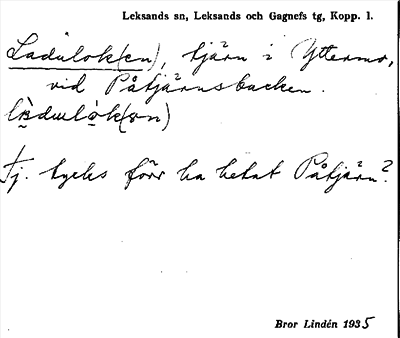 Leksands sn, Leksands och Gagnefs tg, Kopp. l.
Ladulok(en), tjärn i Yttermo,
vid Påtjärnsbacken.
Tj. tycks förr ha hetat Påtjärn?
Bror Lindén 1935